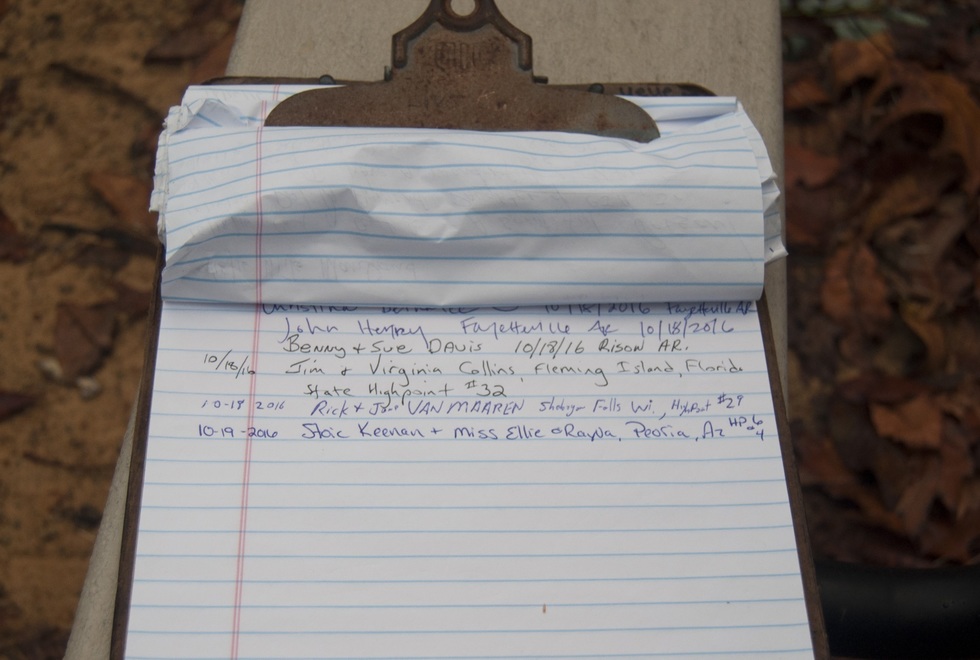 Christina 10/18/2016 Fayetteville AR
John Henry Fayetteville AR 10/18/2016
Benny + Sue Davis 10/18/16 Rison AR.
10/18/16 Jim & Virginia Collins, Fleming Island, Florida
State Highpoint #32
2016 Rick + VAN MAAREN Falls Wi., HighPoint #29
10-19-2016 Stoic Keenan + Miss Ellie Peoria, Az HP 6
4